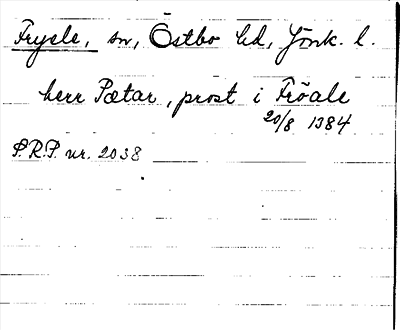 Fryele, sn, Östbo hd, Jönk. l.
herr Pætar, prost i Fröale
20/8 1384
P.R.P. nr. 2038